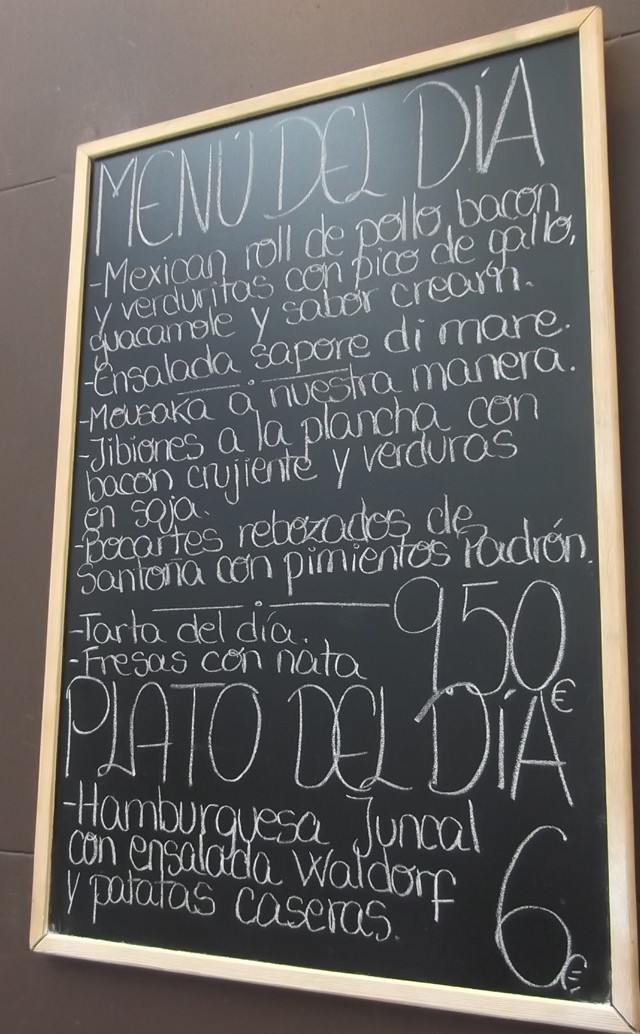 MENÚ DEL DÍA
-Mexican roll de pollo, bacon
y verduritas con pico de gallo,
guacamole y sabor cream.
-Ensalada sapore di mare.
-Mousaka a nuestra manera.
-Jibiones a la plancha con
bacón crujiente y verduras
en soja.
-Bocartes rebozados de
Santoña con pimientos Padrón.
-Tarta del día.
-Fresas con nata
9,50€
PLATO DEL DÍA
-Hamburguesa Juncal
con ensalada Waldorf
y patatas caseras.
6€